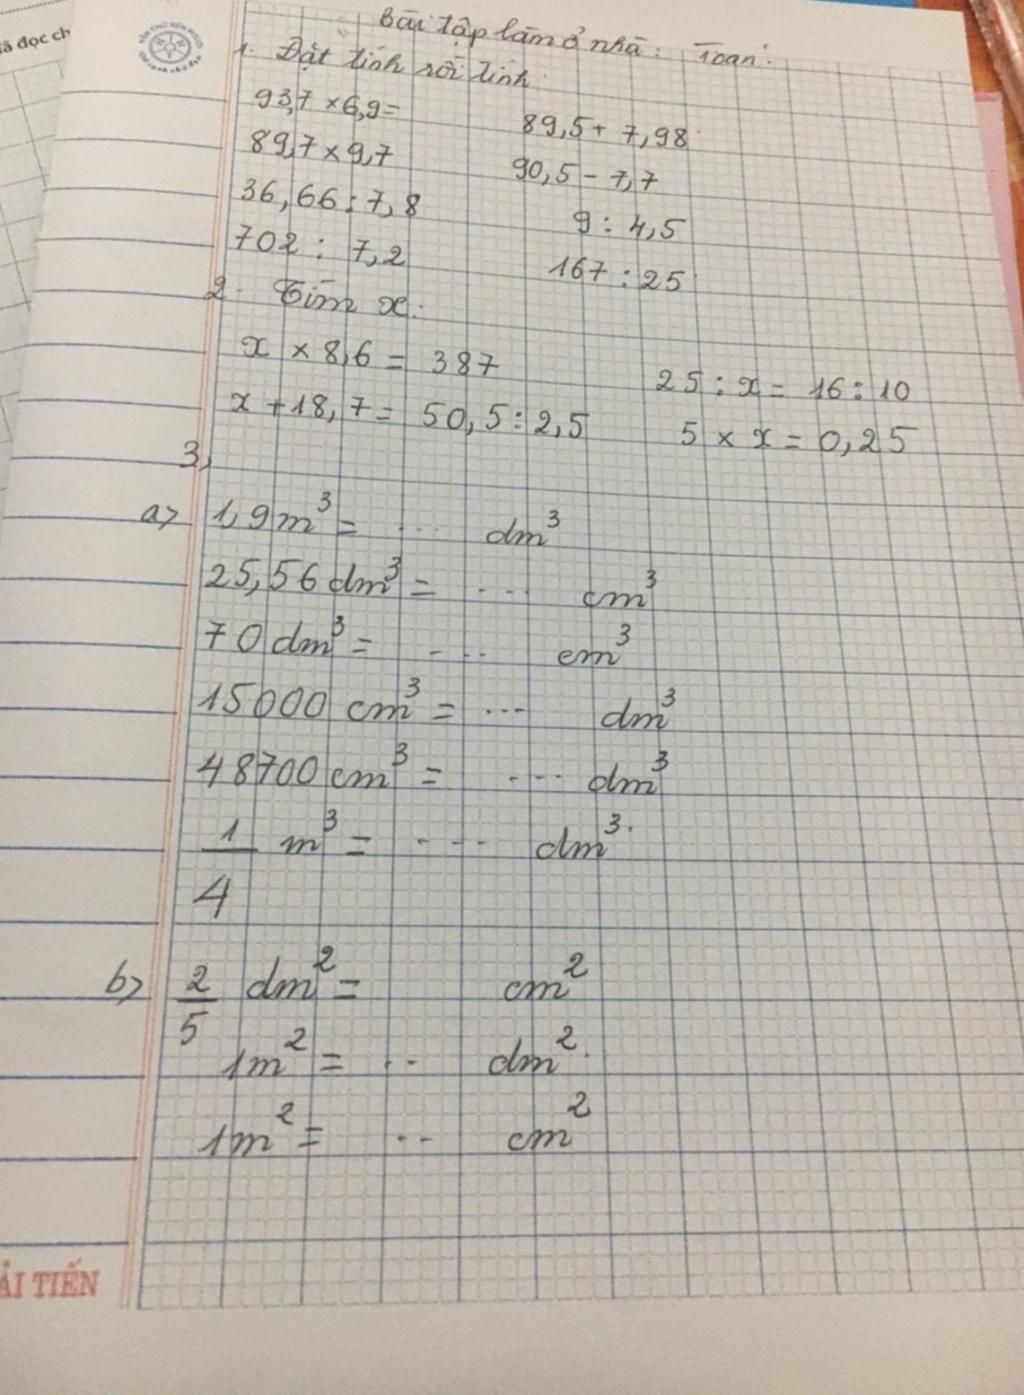 ã đọc ch
Bài tập làm ở nhà: Toán.
1. Đặt tính rồi tính
93,7 × 6,9 =
89,5 + 7,98
89,7 × 9,7
90,5 - 7,7
36,66 : 7,8
9 : 4,5
702 : 7,2
167 : 25
2. Tìm x:
x × 8,6 = 387
25 : x = 16 : 10
x + 18,7 = 50,5 : 2,5
5 × x = 0,25
3,
a> 1,9 m³ = ... dm³
25,56 dm³ = ... cm³
70 dm³ = ... cm³
15000 cm³ = ... dm³
48700 cm³ = ... dm³
1/4 m³ = ... dm³.
b> 2/5 dm² = cm²
1m² = .. dm².
1m² = .. cm²
ẢI TIẾN